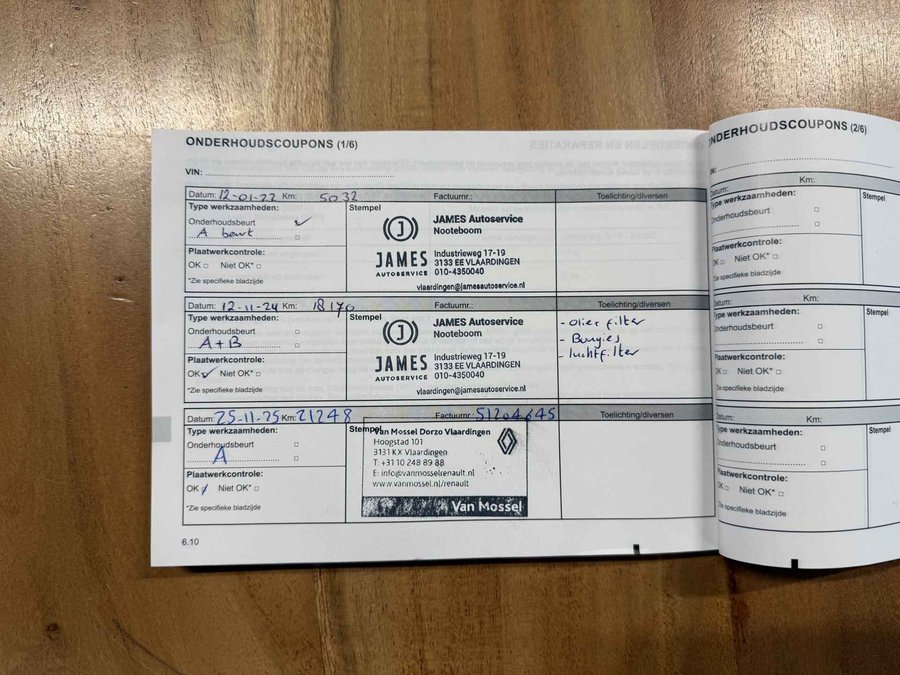 ONDERHOUDSCOUPONS (1/6)
VIN:
Datum: 12-01-22 Km: 5032 Factuurnr.: Toelichting/diversen
Type werkzaamheden:
Onderhoudsbeurt
A beurt
Plaatwerkcontrole:
OK Niet OK*
*Zie specifieke bladzijde
Stempel
JAMES Autoservice
Nooteboom
JAMES
AUTOSERVICE
Industrieweg 17-19
3133 EE VLAARDINGEN
010-4350040
vlaardingen@jamesautoservice.nl
Datum: 12-11-24 Km: 18170 Factuurnr.: Toelichting/diversen
Type werkzaamheden:
Onderhoudsbeurt
A+B
Plaatwerkcontrole:
OK Niet OK*
*Zie specifieke bladzijde
Stempel
JAMES Autoservice
Nooteboom
JAMES
AUTOSERVICE
Industrieweg 17-19
3133 EE VLAARDINGEN
010-4350040
vlaardingen@jamesautoservice.nl
- olier filter
- Bougies
- luchtfilter
Datum: 25-11-25 Km: 21248 Factuurnr.: 51204645 Toelichting/diversen
Type werkzaamheden:
Onderhoudsbeurt
A
Plaatwerkcontrole:
OK Niet OK*
*Zie specifieke bladzijde
Stempel
Van Mossel Dorzo Vlaardingen
Hoogstad 101
3131 KX Vlaardingen
T: +31 10 248 89 88
E: info@vanmosselrenault.nl
www.vanmossel.nl/renault
Van Mossel
6.10
ONDERHOUDSCOUPONS (2/6)
Datum: Km:
Type werkzaamheden:
Onderhoudsbeurt
Plaatwerkcontrole:
OK Niet OK*
*Zie specifieke bladzijde
Stempel
Datum: Km:
Type werkzaamheden:
Onderhoudsbeurt
Plaatwerkcontrole:
OK Niet OK*
*Zie specifieke bladzijde
Stempel
Datum: Km:
Type werkzaamheden:
Onderhoudsbeurt
Plaatwerkcontrole:
OK Niet OK*
*Zie specifieke bladzijde
Stempel